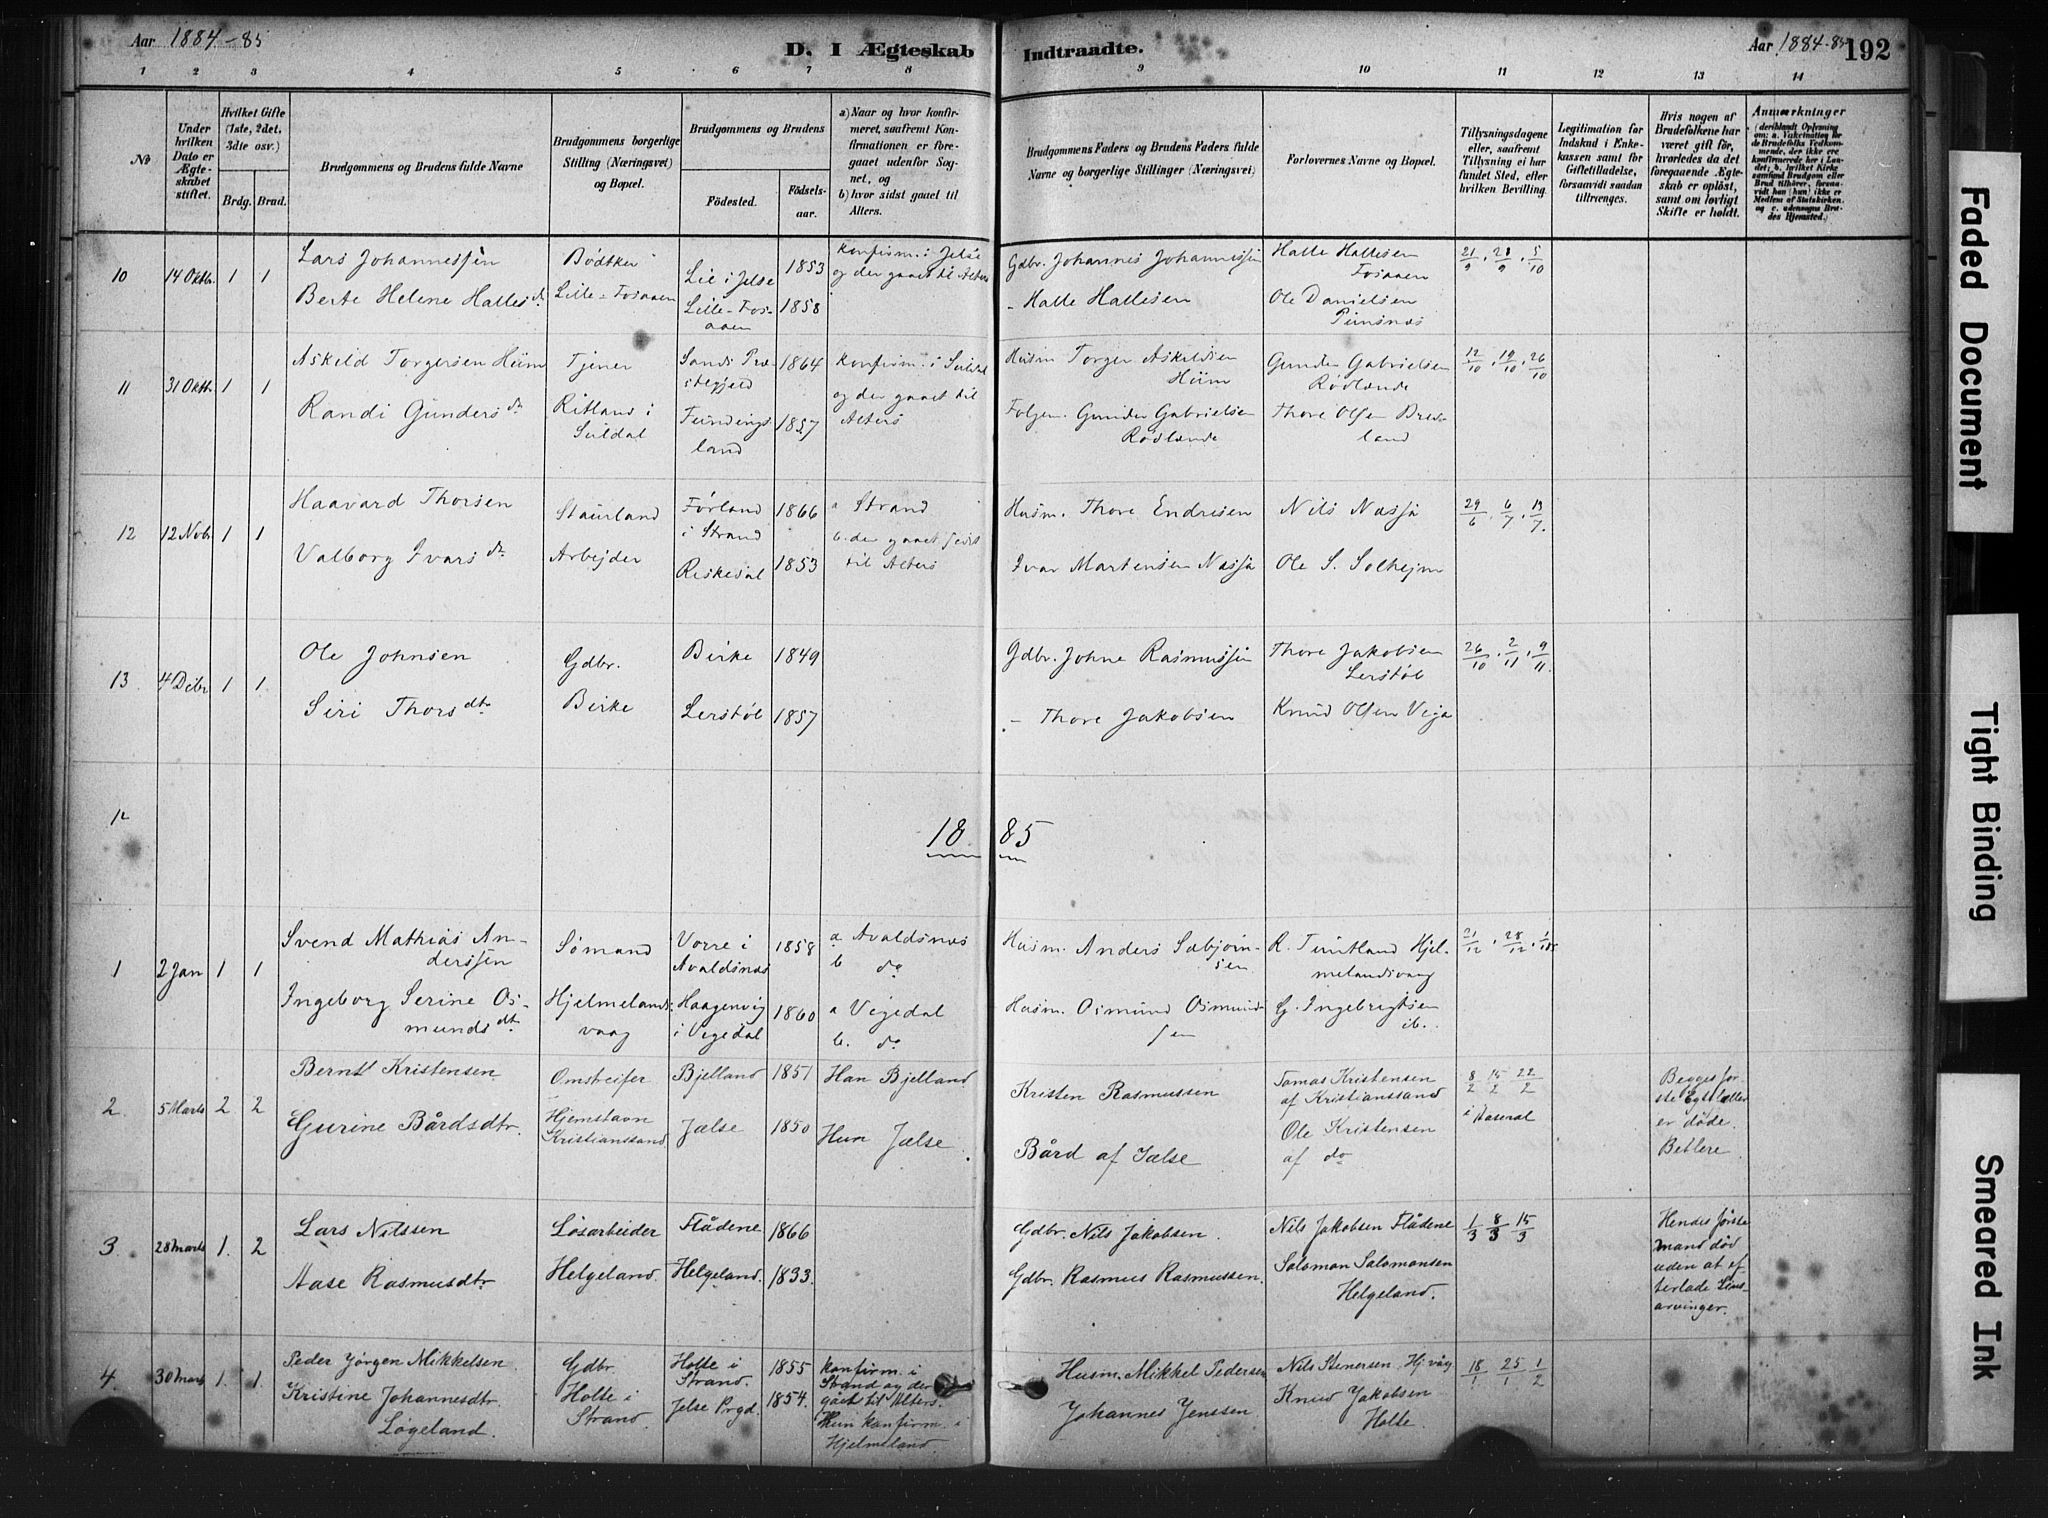 Aar 1884-85
D. I Ægteskab Indtraadte.
Aar 1884-85 192
1 2 3 4 5 6 7 8 9 10 11 12 13 14
No
Under hvilken Dato er Ægteskabet stiftet.
Hvilket Gifte (1ste, 2det, 3die osv.)
Brdg. Brud.
Brudgommens og Brudens fulde Navne
Brudgommens borgerlige Stilling (Næringsvei) og Bopæl.
Brudgommens og Brudens
Fødested.
Fødselsaar.
a) Naar og hvor konfirmeret, saafremt Konfirmationen er foregaaet udenfor Sognet, og
b) hvor sidst gaaet til Alters.
Brudgommens Faders og Brudens Faders fulde Navne og borgerlige Stillinger (Næringsvei)
Forlovernes Navne og Bopæl.
Tillysningsdagene eller, saafremt Tillysning ei har fundet Sted, efter hvilken Bevilling.
Legitimation for Indskud i Enkekassen samt for Giftetilladelse, forsaavidt saadan tiltrænges.
Hvis nogen af Brudefolkene har været gift før, hvorledes da det foregaaende Ægteskab er opløst, samt om lovligt Skifte er holdt.
Anmærkninger
10 14 Oktbr. 1 1
Lars Johannessen
Berte Helene Hallesdr.
Bødtker
Lille-Fosaaen
Lie i Jelse 1853
Lille-Fosaaen 1858
Konfirm. i Jelse og der gaaet til Alters
Gdbr. Johannes Johannessen
- Halle Hallesen
Halle Hallesen Fosaaen
Ole Danielsen
21/9, 28/9, 5/10
11 31 Oktbr 1 1
Askild Torgersen Hiim
Randi Gundersdr
Tjener
Ritland i Suldal
Sands Præstegjeld 1864
Tundingsland 1857
Konfirm. i Suldal og der gaaet til Alters
Husm Torger Askildsen Hiim
Gunder Gabrielsen Rødlende
Gunder Gabrielsen Rødlende
Thore Olsen
12/10, 19/10, 26/10
12 12 Nvbr. 1 1
Haavard Thorsen
Valborg Ivarsdr
Staurland
Arbejder
Førland i Strand 1866
Riskedal 1853
a Strand
b. der gaaet sidst til Alters
Husm. Thore Endresen
Ivar Martensen Nessa
Nils Nessa
Ole S. Solhejm
29/6, 6/7, 13/7
13 4 Debr 1 1
Ole Johnsen
Siri Thorsdtr
Gdbr.
Birke
Birke 1849
Lerstøl 1857
Gdbr. Johne Rasmussen
- Thore Jakobsen
Thore Jakobsen Lerstøl
Knud Olsen Vega
26/10, 2/11, 9/11
1885
1 2 Jan 1 1
Svend Mathias Anderssen
Ingeborg Serine Osmundsdtr
Sømand
Hjelmelandsvaag
Vorre i Avaldsnæs 1858
Haagenvig i Vigedal 1860
a Avaldsnæs
b do
a Vigedal
b. do
Husm. Anders Sæbjørnsen
Husm. Osmund Osmundsen
R. Tuntland Hjelmelandsvaag
G. Ingebrigtsen ib.
21/12, 28/12, 1/1 85
2 5 Marts 2 2
Bernt Kristensen
Gurine Bårdsdtr.
Omstreifer
Hjemstavn Kristianssand
Bjelland 1851
Jælse 1850
Han Bjelland
Hun Jælse
Kristen Rasmussen
Bård af Jælse
Tomas Kristensen af Kristianssand
Ole Kristensen af do
8/2 15/2 22/2
Begges første Egtefæller er døde. Betlere
3 28 Marts 1. 2
Lars Nilssen
Aase Rasmusdtr
Løsarbeider
Helgeland.
Flådene 1866
Helgeland. 1833.
Gdbr. Nils Jakobsen.
Gdbr. Rasmus Rasmussen.
Nils Jakobsen Flådene
Salomon Salomonsen Helgeland.
1/3 8/3 15/3
Hendes første mand død uden at efterlade Livsarvinger.
4. 30 Marts 1. 1.
Peder Jørgen Mikkelsen
Kristine Johannesdtr. Løgeland.
Gdbr
Holte i Strand.
Holte i Strand. 1855
Jelse Prgd. 1854.
konfirm. i Strand og der gået til Alters.
Hun konfirm. i Hjelmeland.
Husm. Mikkel Pedersen
Johannes Jenssen
Nils Stenersen Hjvåg
Knud Jakobsen Holte.
18/1 25/1 1/2
Faded Document
Tight Binding
Smeared Ink